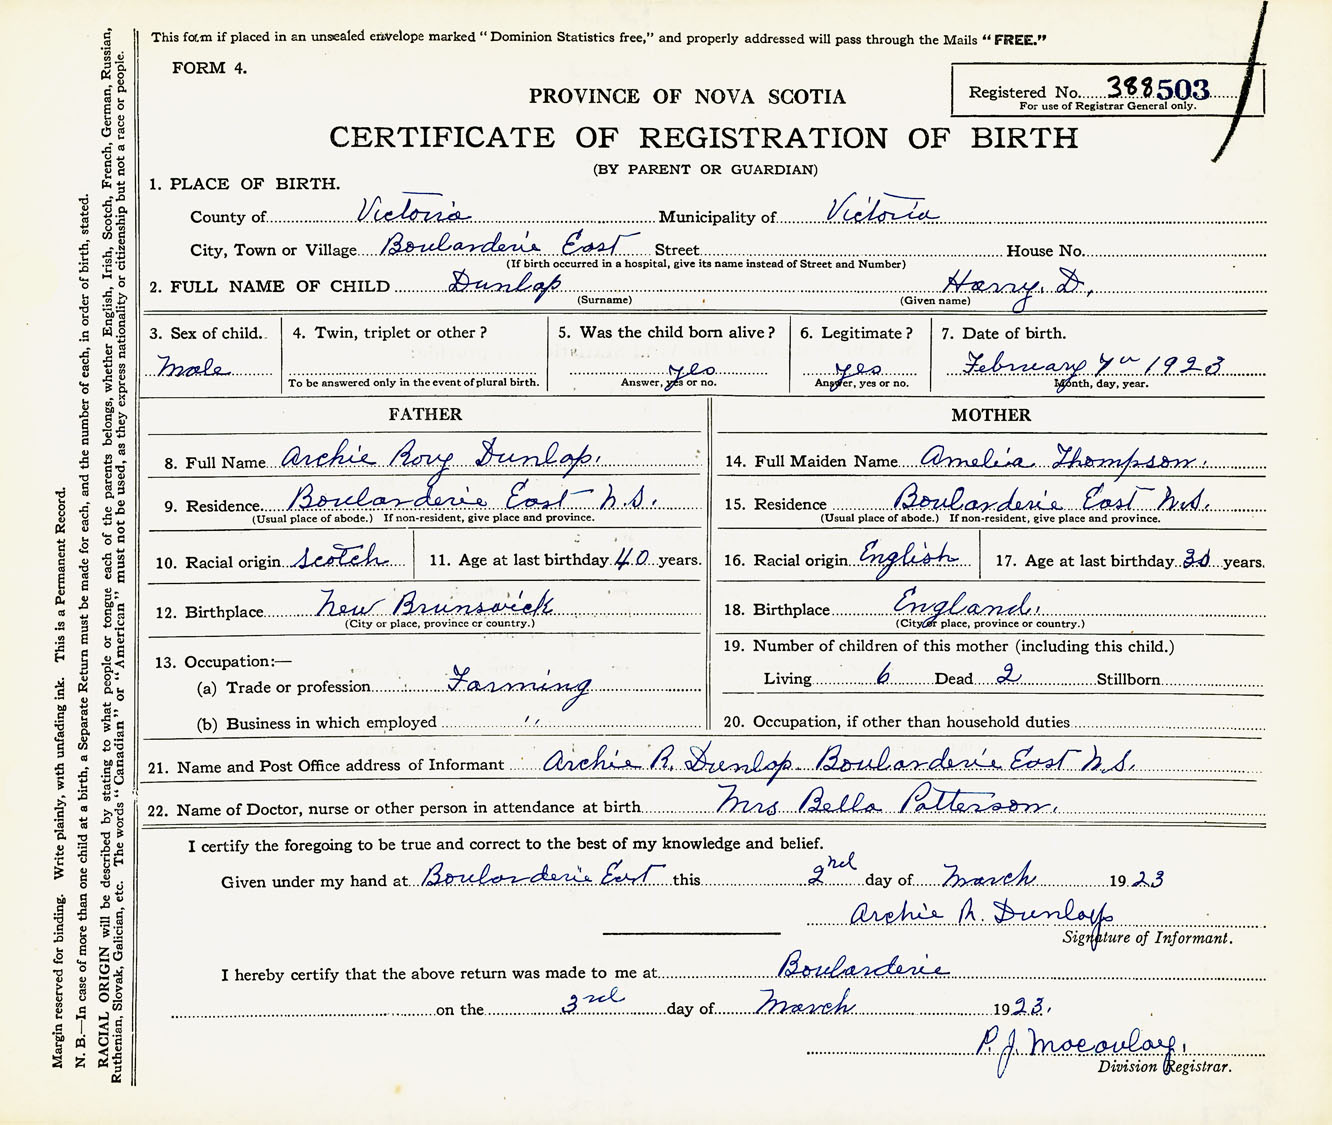 This form if placed in an unsealed envelope marked "Dominion Statistics free," and properly addressed will pass through the Mails "FREE."
FORM 4.
Registered No. 388503
For use of Registrar General only.
PROVINCE OF NOVA SCOTIA
CERTIFICATE OF REGISTRATION OF BIRTH
(BY PARENT OR GUARDIAN)
1. PLACE OF BIRTH.
County of Victoria Municipality of Victoria
City, Town or Village Boularderie East Street House No.
(If birth occurred in a hospital, give its name instead of Street and Number)
2. FULL NAME OF CHILD Dunlap Harry. D.
(Surname) (Given name)
3. Sex of child. 4. Twin, triplet or other? 5. Was the child born alive? 6. Legitimate? 7. Date of birth.
Male yes yes February 7th 1923
To be answered only in the event of plural birth. Answer, yes or no. Answer, yes or no. Month, day, year.
FATHER MOTHER
8. Full Name Archie Roy Dunlap. 14. Full Maiden Name Amelia Thompson.
9. Residence Boularderie East N.S. 15. Residence Boularderie East N.S.
(Usual place of abode.) If non-resident, give place and province. (Usual place of abode.) If non-resident, give place and province.
10. Racial origin Scotch 11. Age at last birthday 40 years. 16. Racial origin English 17. Age at last birthday 30 years.
12. Birthplace New Brunswick 18. Birthplace England.
(City or place, province or country.) (City or place, province or country.)
13. Occupation:— 19. Number of children of this mother (including this child.)
(a) Trade or profession Farming Living 6 Dead 2 Stillborn
(b) Business in which employed " 20. Occupation, if other than household duties
21. Name and Post Office address of Informant Archie R. Dunlap Boularderie East N.S.
22. Name of Doctor, nurse or other person in attendance at birth Mrs Bella Patterson.
I certify the foregoing to be true and correct to the best of my knowledge and belief.
Given under my hand at Boularderie East this 2nd day of March 1923
Archie R. Dunlap
Signature of Informant.
I hereby certify that the above return was made to me at Boularderie
on the 3rd day of March 1923.
P. J. Macaulay.
Division Registrar.
Margin reserved for binding. Write plainly, with unfading ink. This is a Permanent Record.
N. B.—In case of more than one child at a birth, a Separate Return must be made for each, and the number of each, in order of birth, stated.
RACIAL ORIGIN will be described by stating to what people or tongue each of the parents belongs, whether English, Irish, Scotch, French, German, Russian,
Ruthenian, Slovak, Galician, etc. The words "Canadian" or "American" must not be used, as they express nationality or citizenship but not a race or people.